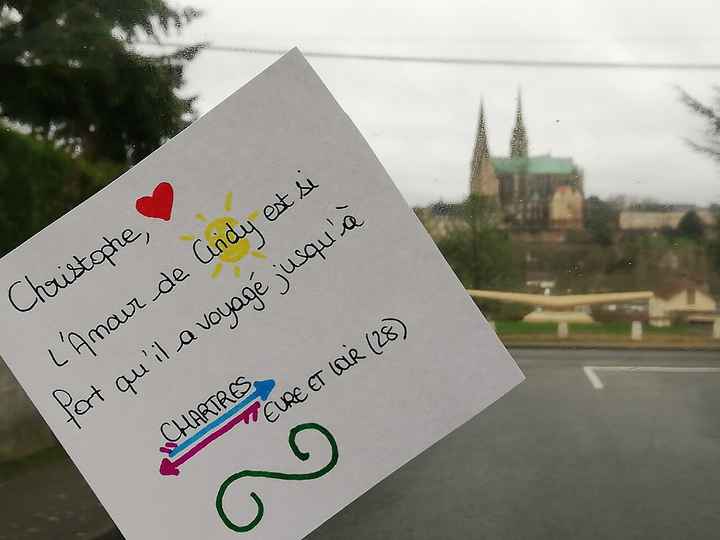 Christophe,
L'Amour de Cindy est si
fort qu'il a voyagé jusqu'à
CHARTRES
EURE ET LOIR (28)